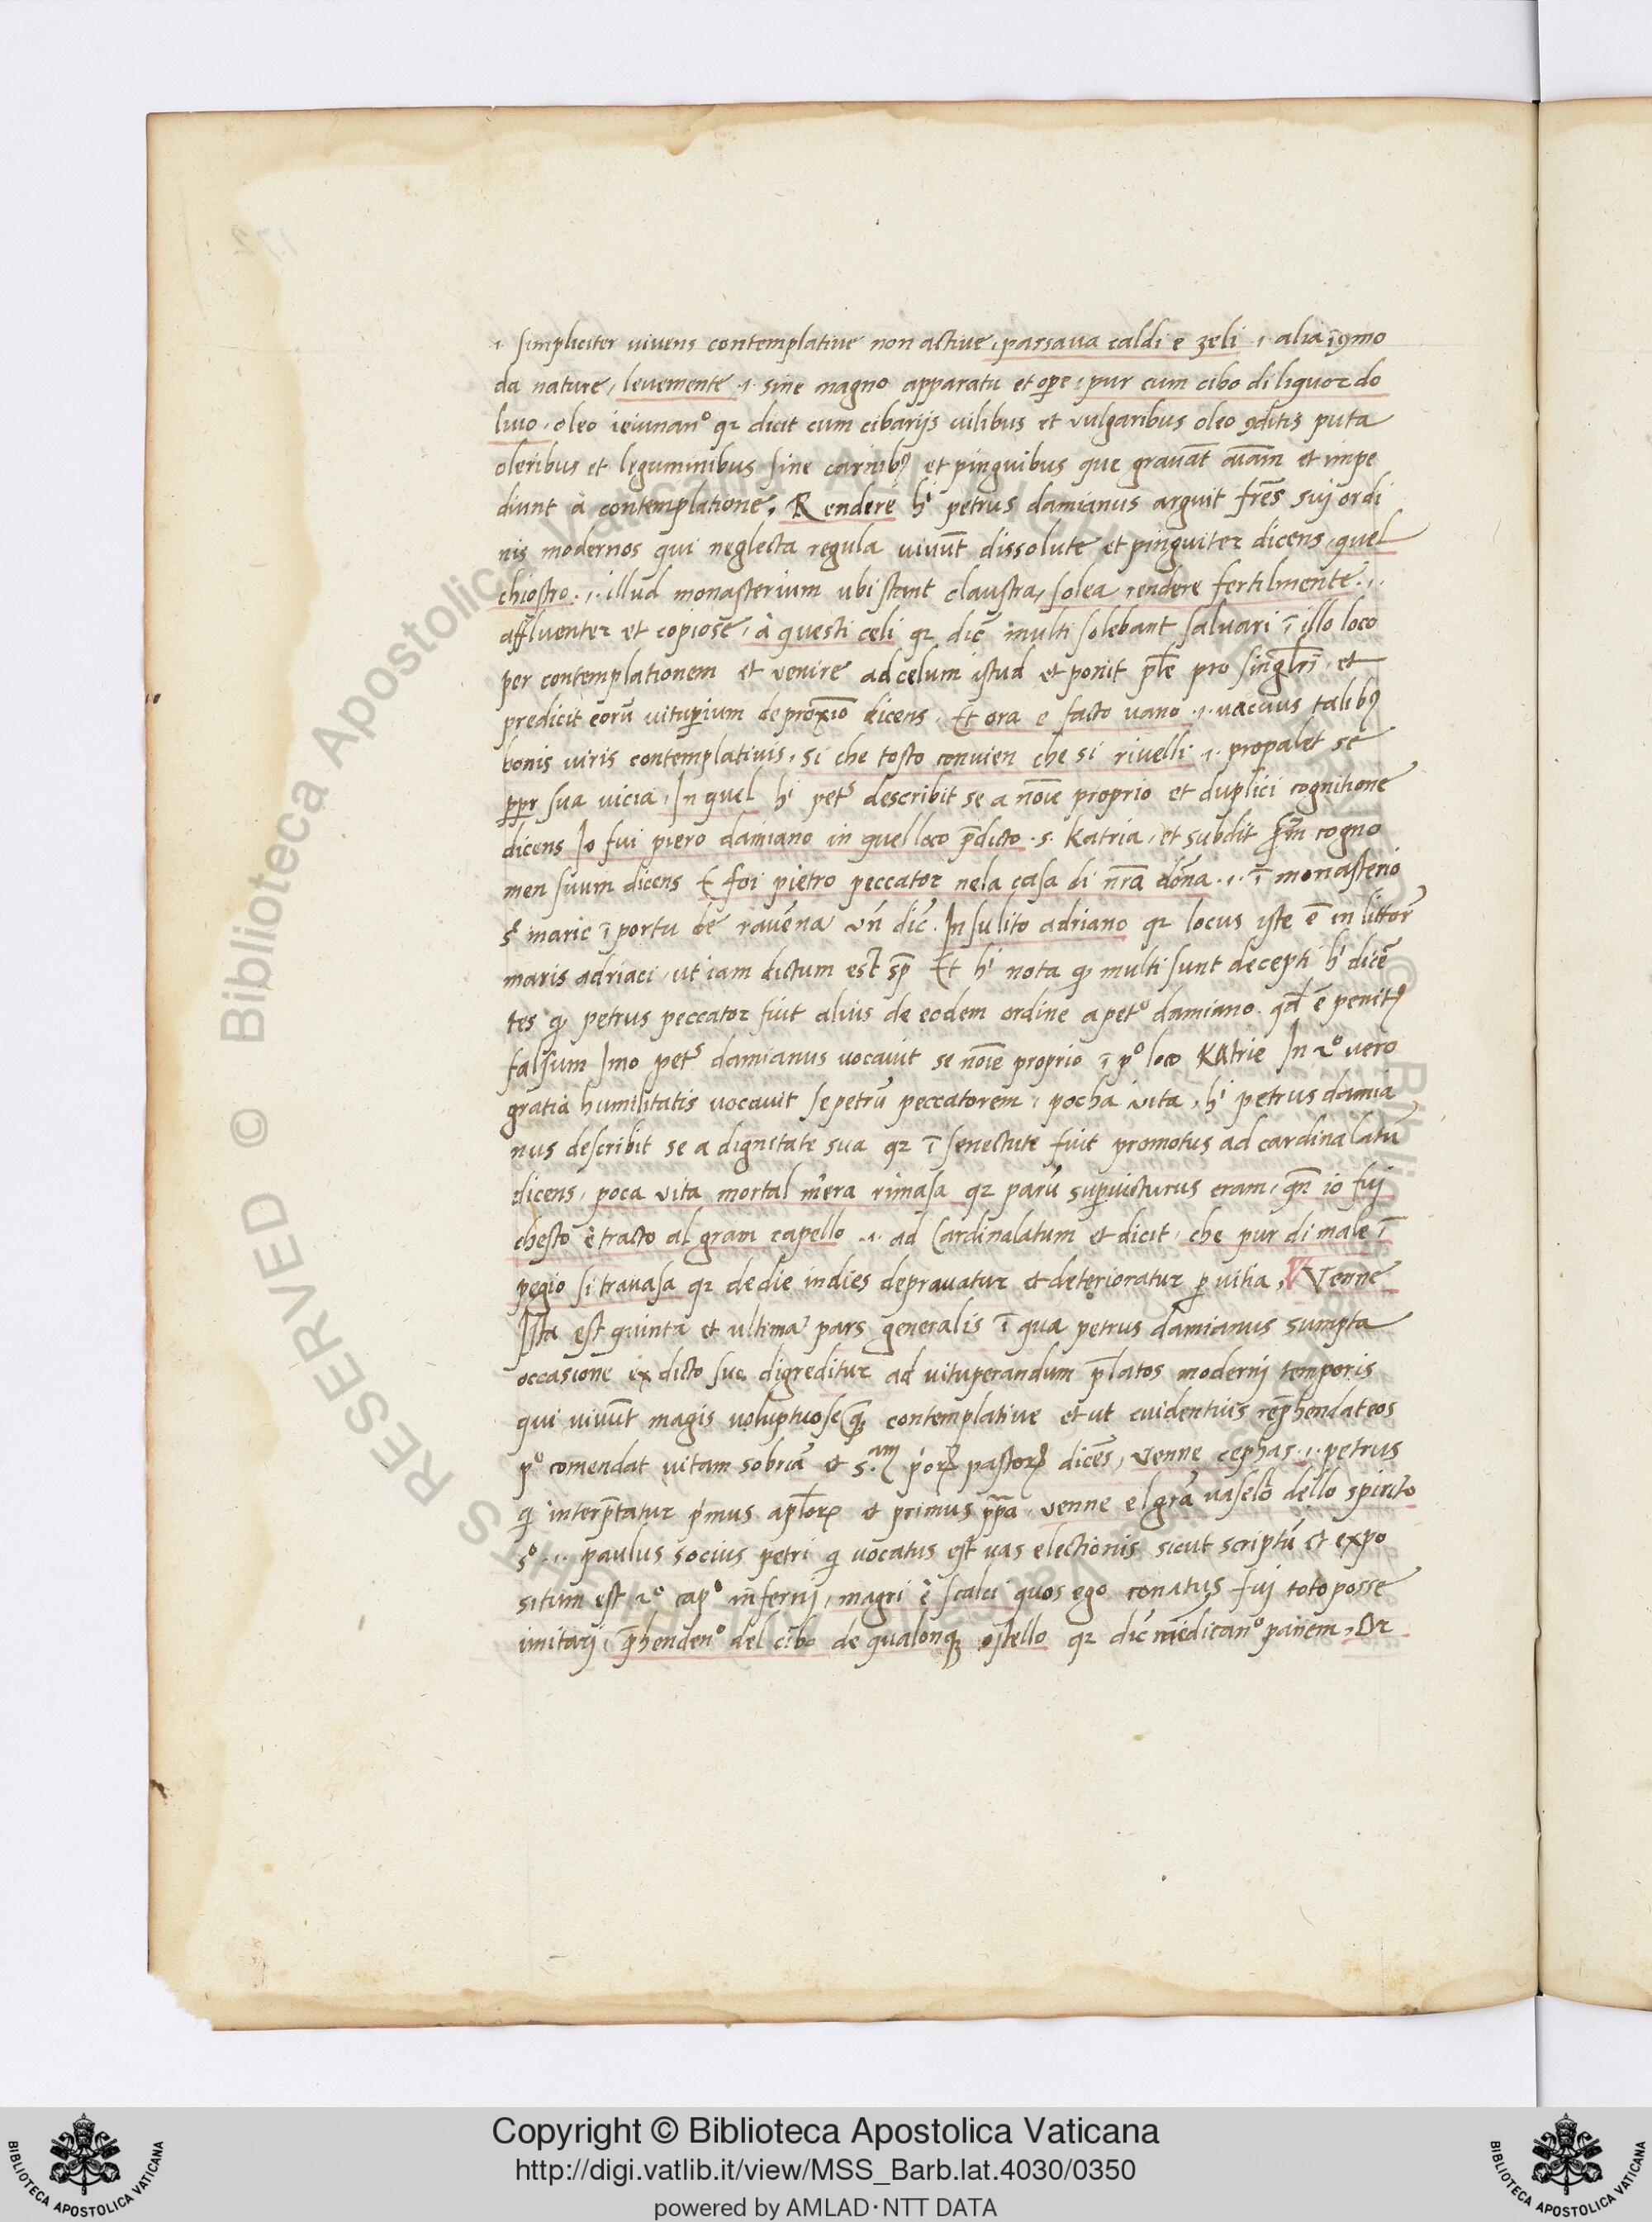 .i. simpliciter vivens contemplative non active, passava caldi e zeli .i. alia ĩꝯmo
da nature, levemente .i. sine magno apparatu et oꝑe, pur cum cibo di liquor do
livo, oleo ieiunanᵒ qꝛ dicit cum cibarijs vilibus et vulgaribus oleo ꝯditis puta
oleribus et leguminibus sine carnibꝰ et pinguibus que gravãt aĩam et impe
diunt a contemplatione, Rendere hⁱ petrus damianus arguit frẽs suj ordi
nis modernos qui neglecta regula vivũt dissolute et pinguiter dicens, quel
chiostro .i. illud monasterium ubi stant claustra, solea rendere fertilmente .i.
affluenter et copiose, à questi celi qꝛ dic̃ multi solebant salvari ĩ illo loco
per contemplationem et venire ad celum istud et ponit ꝑłe pro singłri, et
predicit eorũ vituꝑium de proxĩo dicens, Et ora e facto vano .i. vacuus talibꝰ
bonis viris contemplativis, si che tosto convien che si rivelli .i. propalet se
ꝑpr sua vicia, In quel hⁱ petˢ describit se a nõie proprio et duplici cognitione
dicens Io fui piero damiano in quel loco p̃dicto .s. Katria, et subdit scđm cogno
men suum dicens E foi pietro peccator nela casa di nr̃a dõna .i. ĩ monasterio
sᵉ marie ĩ portu de ravẽna vñ dic̃ In sul lito adriano qꝛ locus iste ẽ in littorẽ
maris adriaci, ut iam dictum est sp̃ Et hⁱ nota ꝙ multi sunt decepti hⁱ dicẽ
tes ꝙ petrus peccator fuit alius de eodem ordine a petᵒ damiano qđ ẽ penitꝰ
falsum Imo petˢ damianus vocavit se nõie proprio ĩ pᵒ loco Katrie In 2ᵒ vero
gratia humilitatis vocavit se petrũ peccatorem, pocha vita, hⁱ petrus damia
nus describit se a dignitate sua qꝛ ĩ senectute fuit promotus ad cardinalatũ
dicens, poca vita mortal m'era rimasa qꝛ parũ suꝑvicturus eram, qñ io fuj
chesto è tracto al gram capello .i. ad Cardinalatum et dicit, che pur di male ĩ
pegio si travasa qꝛ de die in dies depravatur et deterioratur ꝑ vitia, Venne
Ista est quinta et ultima pars generalis ĩ qua petrus damianus sumpta
occasione ex dicto suo digreditur ad vituperandum p̃latos modernj temporis
qui vivũt magis voluptuose qꝫ contemplative et ut evidentius rep̃hendat eos
pᵒ comendat vitam sobriã et s.ᵃᵐ p'orꝝ pastorꝝ dicẽs, Venne cephas .i. petrus
ꝗ interp̃tatur p'mus apłorꝝ et primus pp̃a, venne el grã vaselo dello spirito
sᵒ .i. paulus socius petri ꝗ vocatus est vas electionis sicut scriptũ et expo
situm est 2ᵒ capᵒ infernj, magri è scalci quos ego conatus fuj toto posse
imitarj, p̃hendenᵒ del cibo de qualonqꝫ ostello qꝛ dic̃ mẽdicanᵒ panem, Or
Copyright © Biblioteca Apostolica Vaticana
http://digi.vatlib.it/view/MSS_Barb.lat.4030/0350
powered by AMLAD·NTT DATA